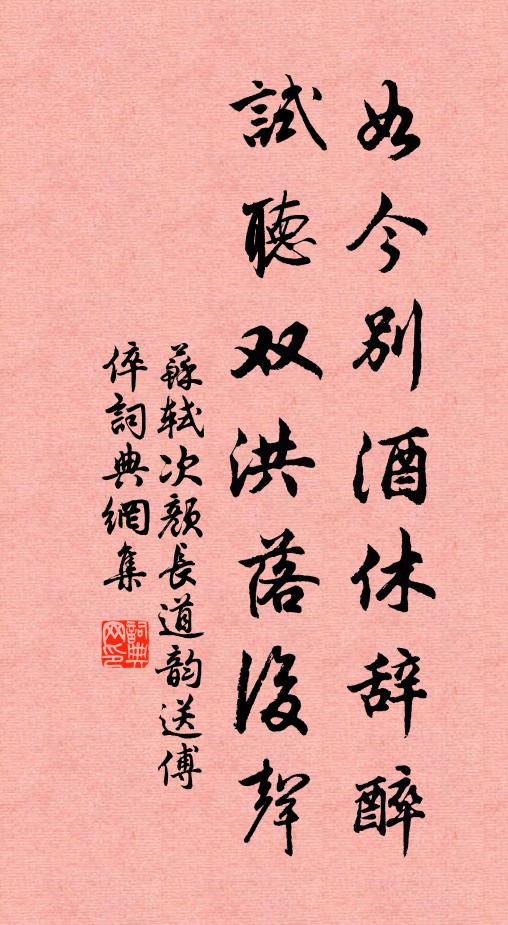 如今别酒休辞醉
試聽双洪落後聲
蘇軾次顏長道韵送傅
倅詞典網集
詞典网印